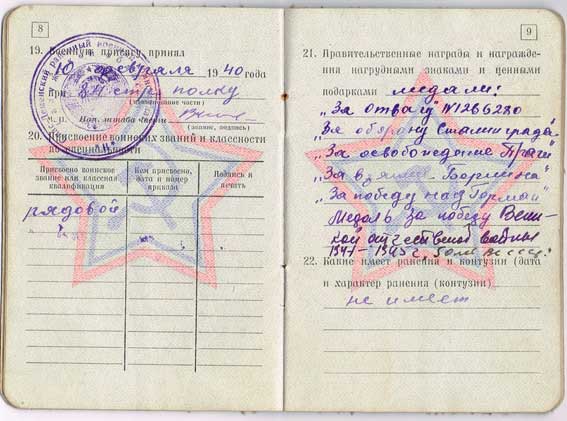 8
19. Военную присягу принял
10 февраля 1940 года
при стр. полку
(наименование части)
М. П. Нач. штаба части
(звание, подпись)
20. Присвоение воинских званий и классности
по специальности
Присвоено воинское
звание или классная
квалификация
Кем присвоено,
дата и номер
приказа
Подпись и
печать
рядовой
9
21. Правительственные награды и награжде-
ния нагрудными знаками и ценными
подарками медали:
„За отвагу" №1266280
„За оборону Сталинграда"
„За освобождение Праги"
„За взятие Берлина"
„За победу над Герман
Медаль За победу Вели-
кой отечественной войны
1941-1945г.
22. Какие имеет ранения и контузии (дата
и характер ранения (контузии)
не имеет